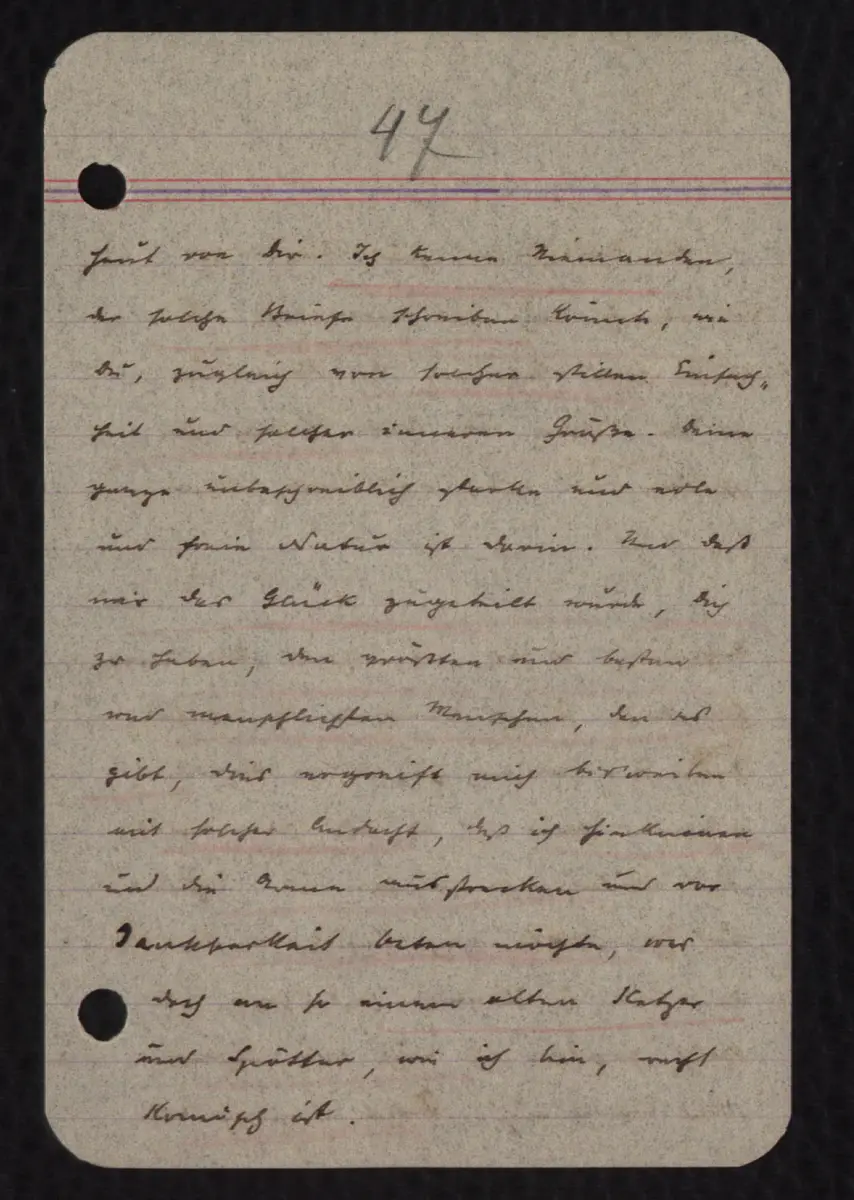 47
heut von Dir. Ich kenne Niemanden,
der solche Briefe schreiben könnte, wie
Du, zugleich von solcher stillen Einfach„
heit und solcher inneren Größe. Deine
ganze unbeschreiblich starke und edle
und freie Natur ist darin. Und daß
mir das Glück zugeteilt wurde, Dich
zu haben, den größten und besten
und menschlichsten Menschen, den es
gibt, dies ergreift mich bisweilen
mit solcher Andacht, daß ich hinknieen
und die Arme ausstrecken und vor
Dankbarkeit beten möchte, was
doch an so einem alten Ketzer
und Spötter, wie ich bin, recht
komisch ist.